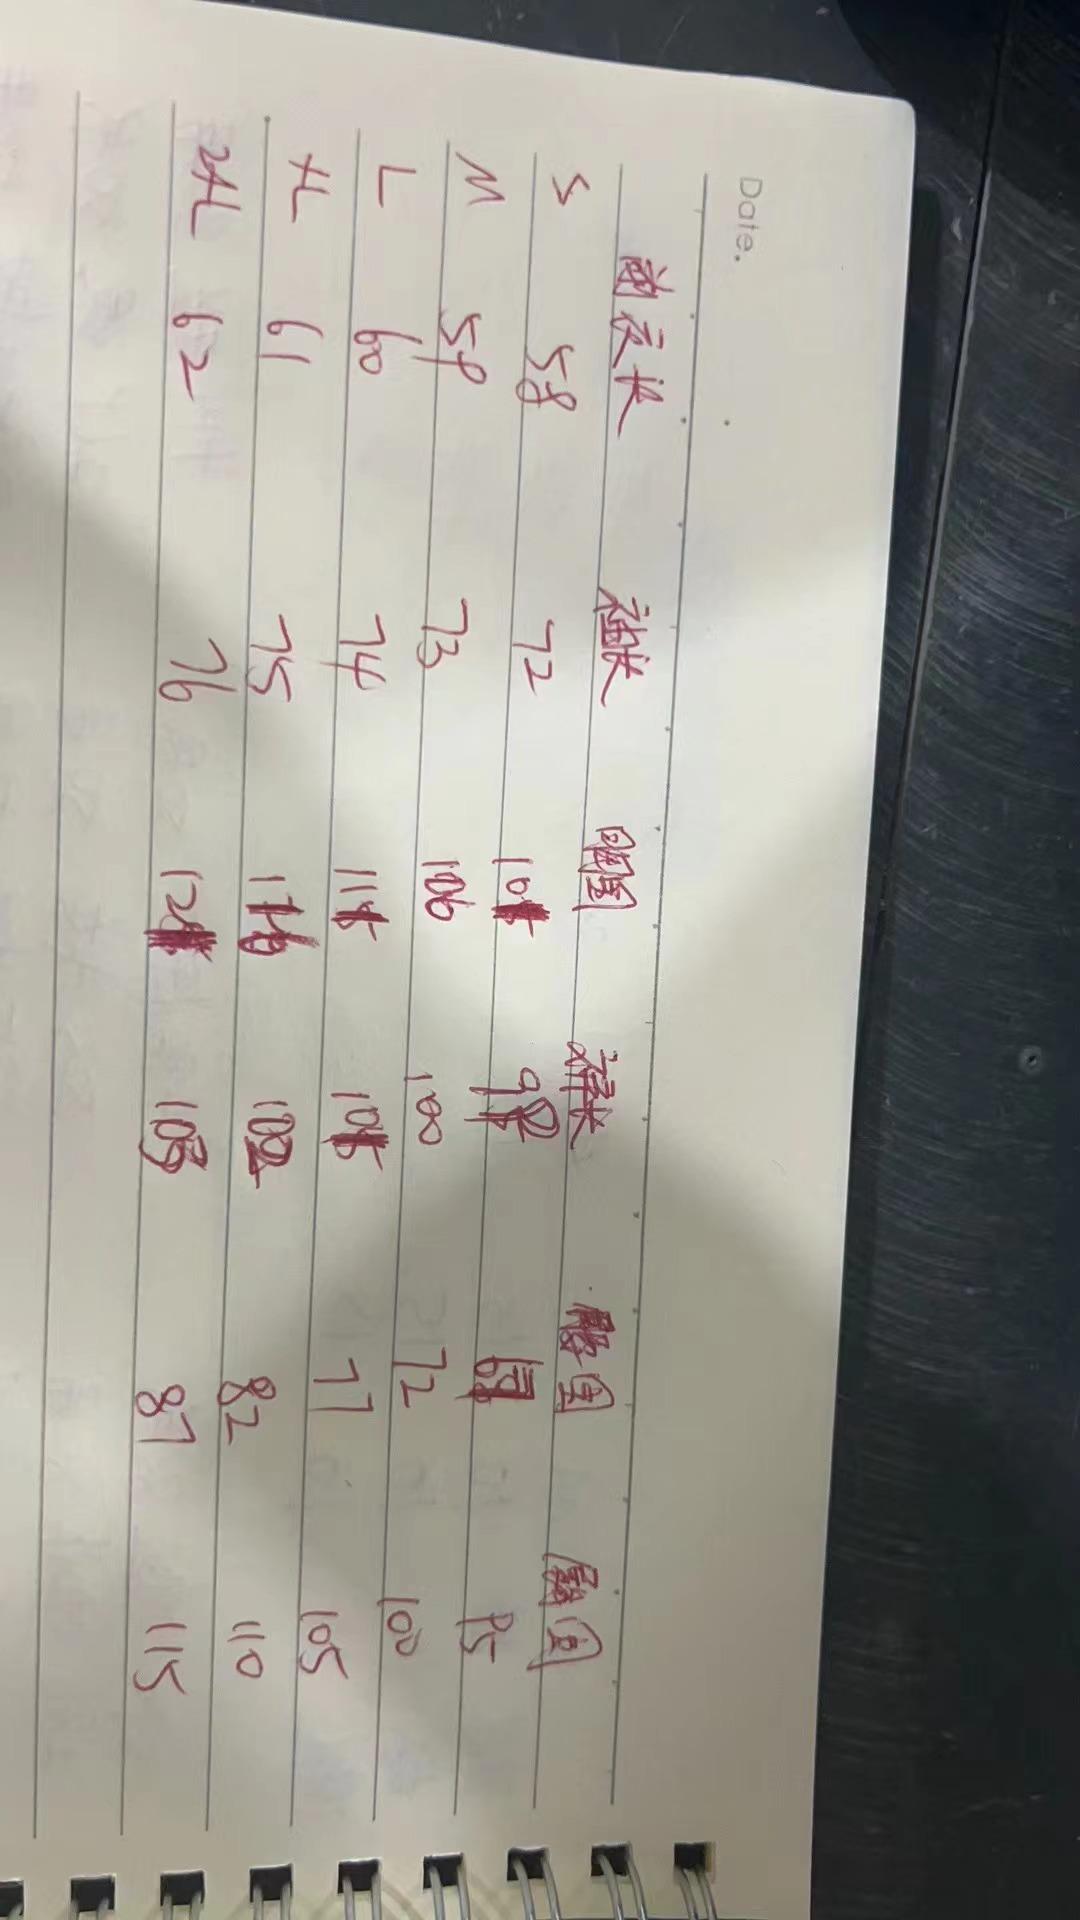 Date.
前衣长 袖长 胸围 裤长 腰围 臀围
S 58 72 98 95
M 59 73 106 100 72 100
L 60 74 77 105
XL 61 75 102 82 110
2XL 62 76 103 87 115